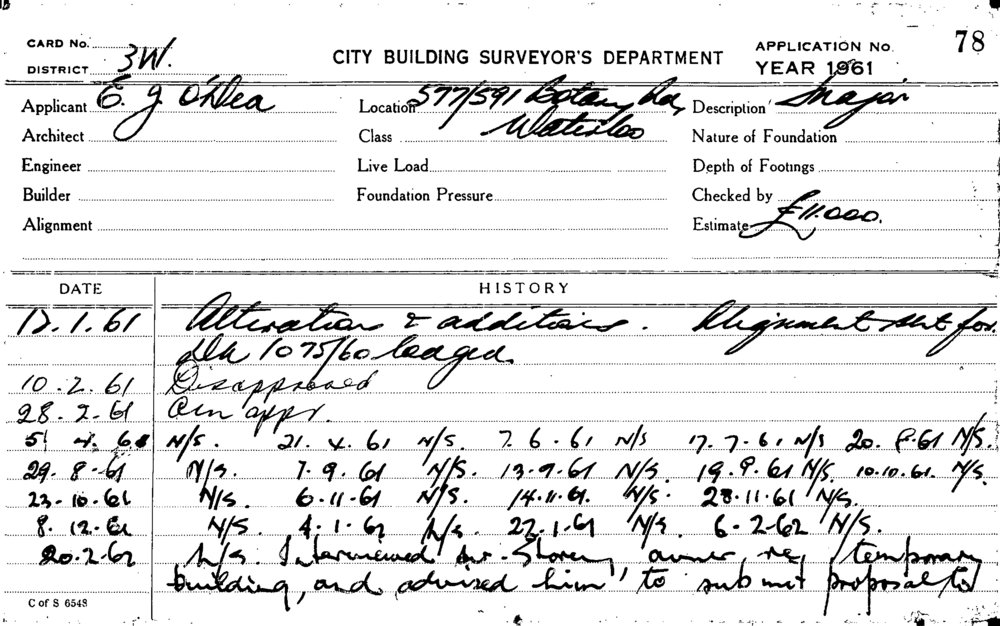 CARD No.
DISTRICT 3W.
CITY BUILDING SURVEYOR'S DEPARTMENT
APPLICATION No. 78
YEAR 1961
Applicant E. J O'Dea Location 577/591 Botany Rd, Description Major
Architect Class Waterloo Nature of Foundation
Engineer Live Load Depth of Footings
Builder Foundation Pressure Checked by
Alignment Estimate £11.000.
DATE HISTORY
17.1.61 Alterations & additions. Alignment sht for
1075/60 lodged.
10.2.61 Disapproved
28.2.61 appr.
5 4. 61 N/S. 21. 4. 61 N/S. 7. 6. 61 N/S 17. 7. 61 N/S 20. 8. 61 N/S.
29. 8. 61 N/S. 7. 9. 61 N/S. 13. 9. 61 N/S. 19. 9. 61 N/S. 10.10.61. N/S.
23. 10. 61 N/S. 6. 11. 61 N/S. 14. 11. 61. N/S. 28. 11. 61 N/S.
8. 12. 61 N/S. 4. 1. 62 N/S. 22. 1. 61 N/S. 6. 2. 62 N/S.
20.2.62 N/S. Interviewed Mr. Storey, owner, re, temporary
building, and advised him, to submit proposal to
C of S 6548